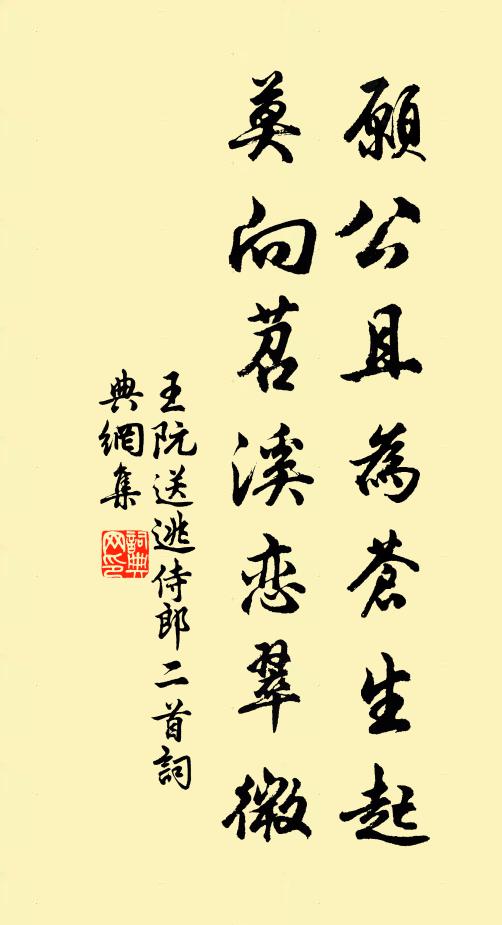 願公且為蒼生起
莫向苕溪恋翠微
王阮送逃侍郎二首詞
典網集
詞典网印